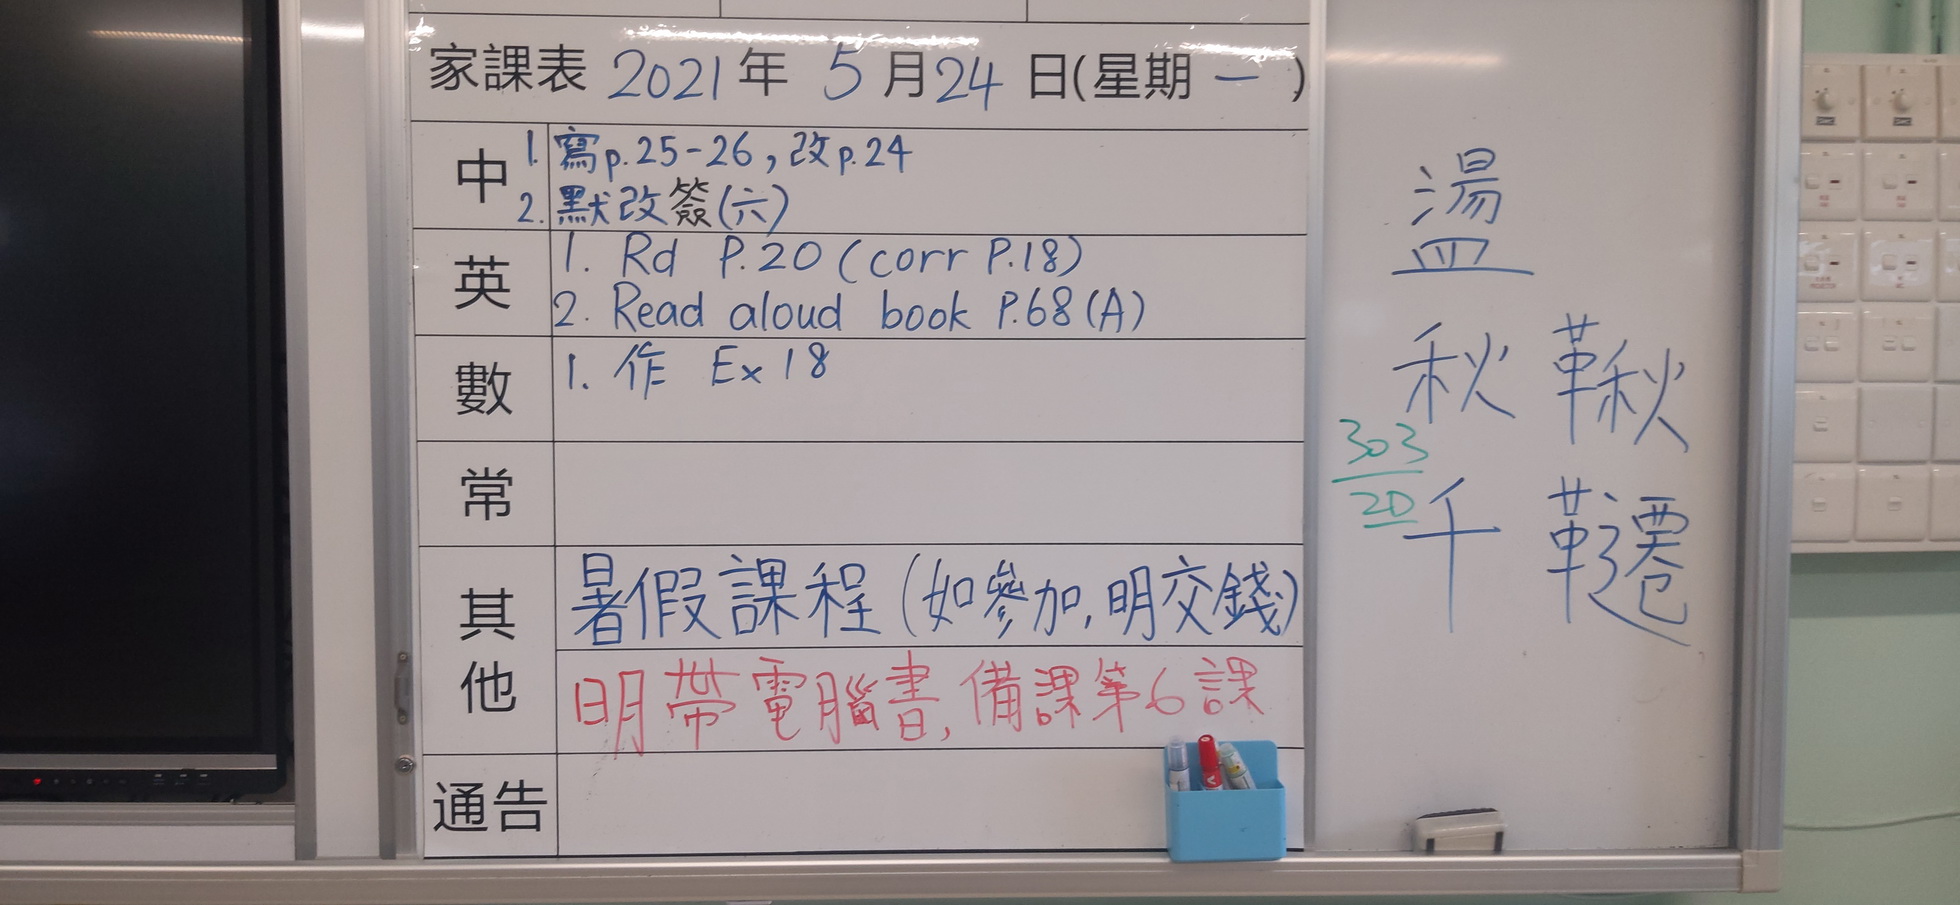 家課表 2021年 5月24日(星期一)
中 1. 寫p.25-26, 改p.24
2. 默改簽(六)
英 1. Rd P.20 (corr P.18)
2. Read aloud book P.68(A)
數 1. 作 Ex 18
常
其他 暑假課程 (如參加, 明交錢)
明帶電腦書, 備課第6課
通告
盪
秋 鞦
千 韆
303
20